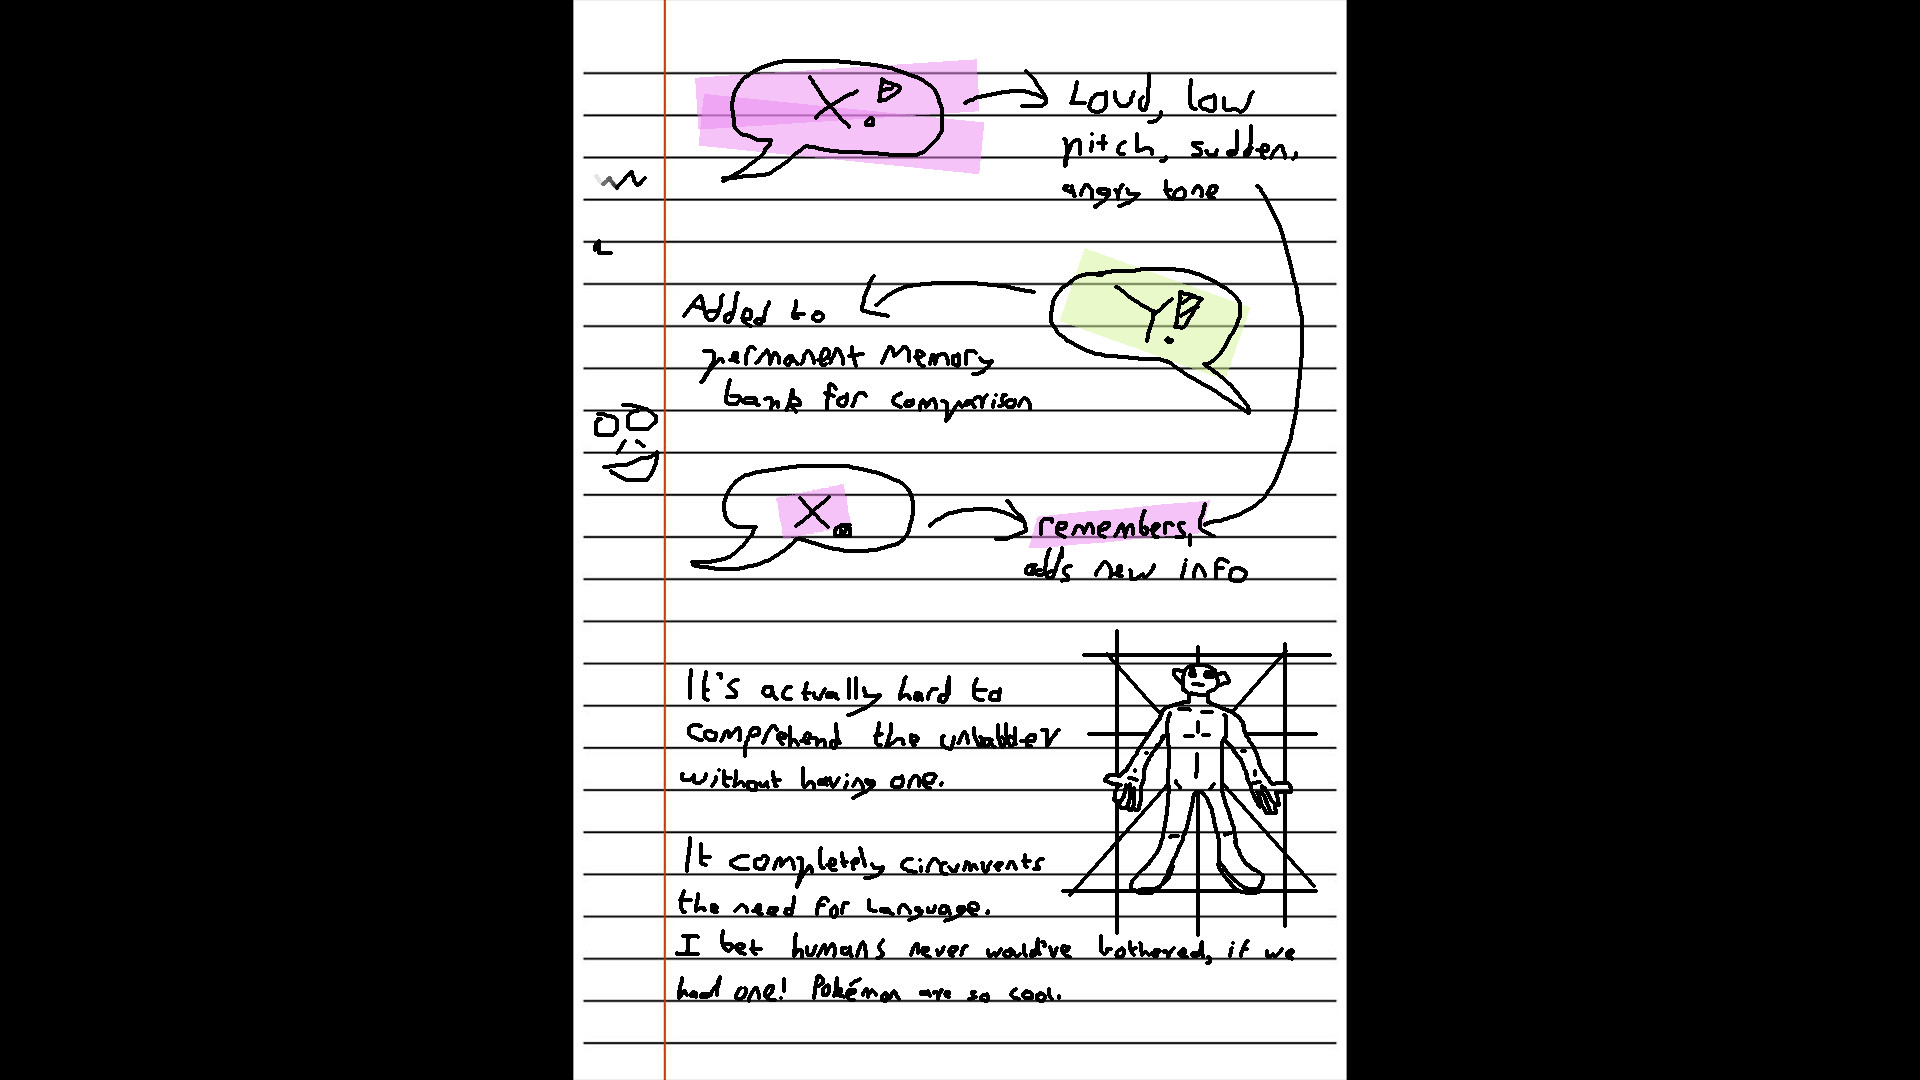 X!
Loud, low
pitch, sudden,
angry tone
Y!
Added to
permanent memory
bank for comparison
X.
remembers,
adds new info
It's actually hard to
comprehend the
without having one.
It completely circumvents
the need for language.
I bet humans never would've bothered, if we
had one! Pokémon are so cool.